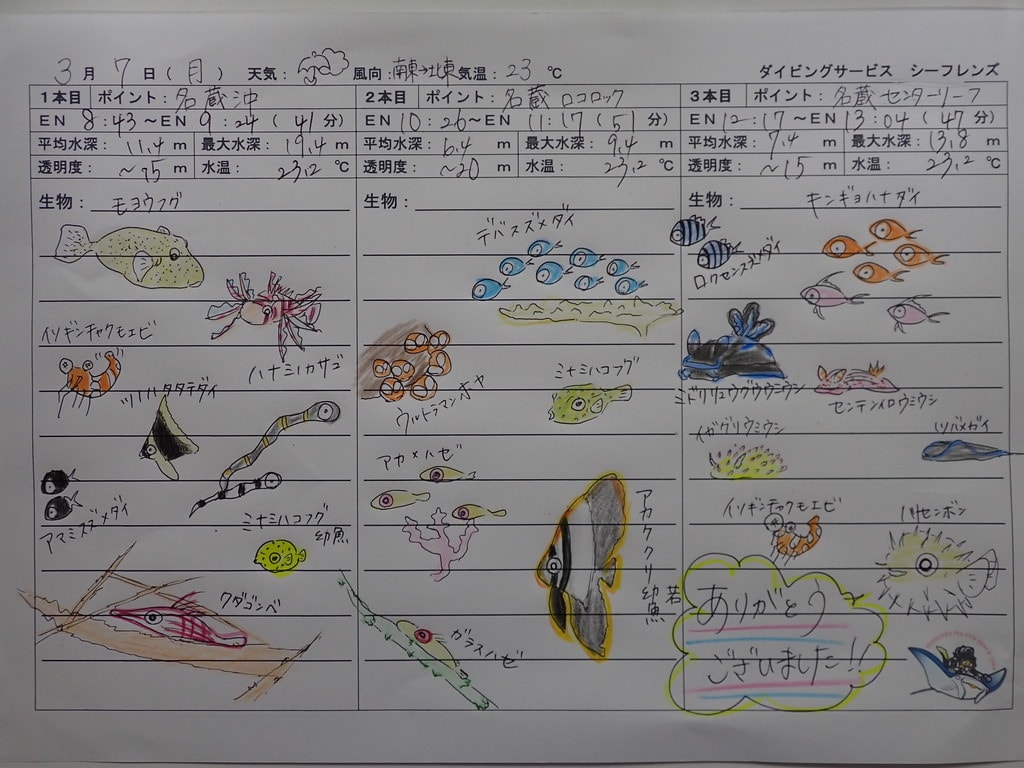 3月 7日(月) 天気: 風向:南東→北東 気温:23℃ ダイビングサービス シーフレンズ
1本目 ポイント:名蔵沖
EN 8:43～EN 9:24(41分)
平均水深:11.4m 最大水深:19.4m
透明度:～15m 水温:23.2℃
生物:モヨウフグ
イソギンチャクモエビ
ハナミノカサゴ
ツノハタタテダイ
アマミスズメダイ
ミナミハコフグ
幼魚
クダゴンベ
2本目 ポイント:名蔵ロコロック
EN 10:26～EN 11:17(51分)
平均水深:6.4m 最大水深:9.4m
透明度:～20m 水温:23.2℃
生物:
デバスズメダイ
ウルトラマンボヤ
ミナミハコフグ
アカメハゼ
アカククリ若幼魚
ガラスハゼ
3本目 ポイント:名蔵センターリーフ
EN 12:17～EN 13:04(47分)
平均水深:7.4m 最大水深:13.8m
透明度:～15m 水温:23.2℃
生物:キンギョハナダイ
ロクセンスズメダイ
ミドリリュウグウウミウシ
センテンイロウミウシ
イガグリウミウシ
ツバメガイ
イソギンチャクモエビ
ハリセンボン
ありがとう
ございました!!